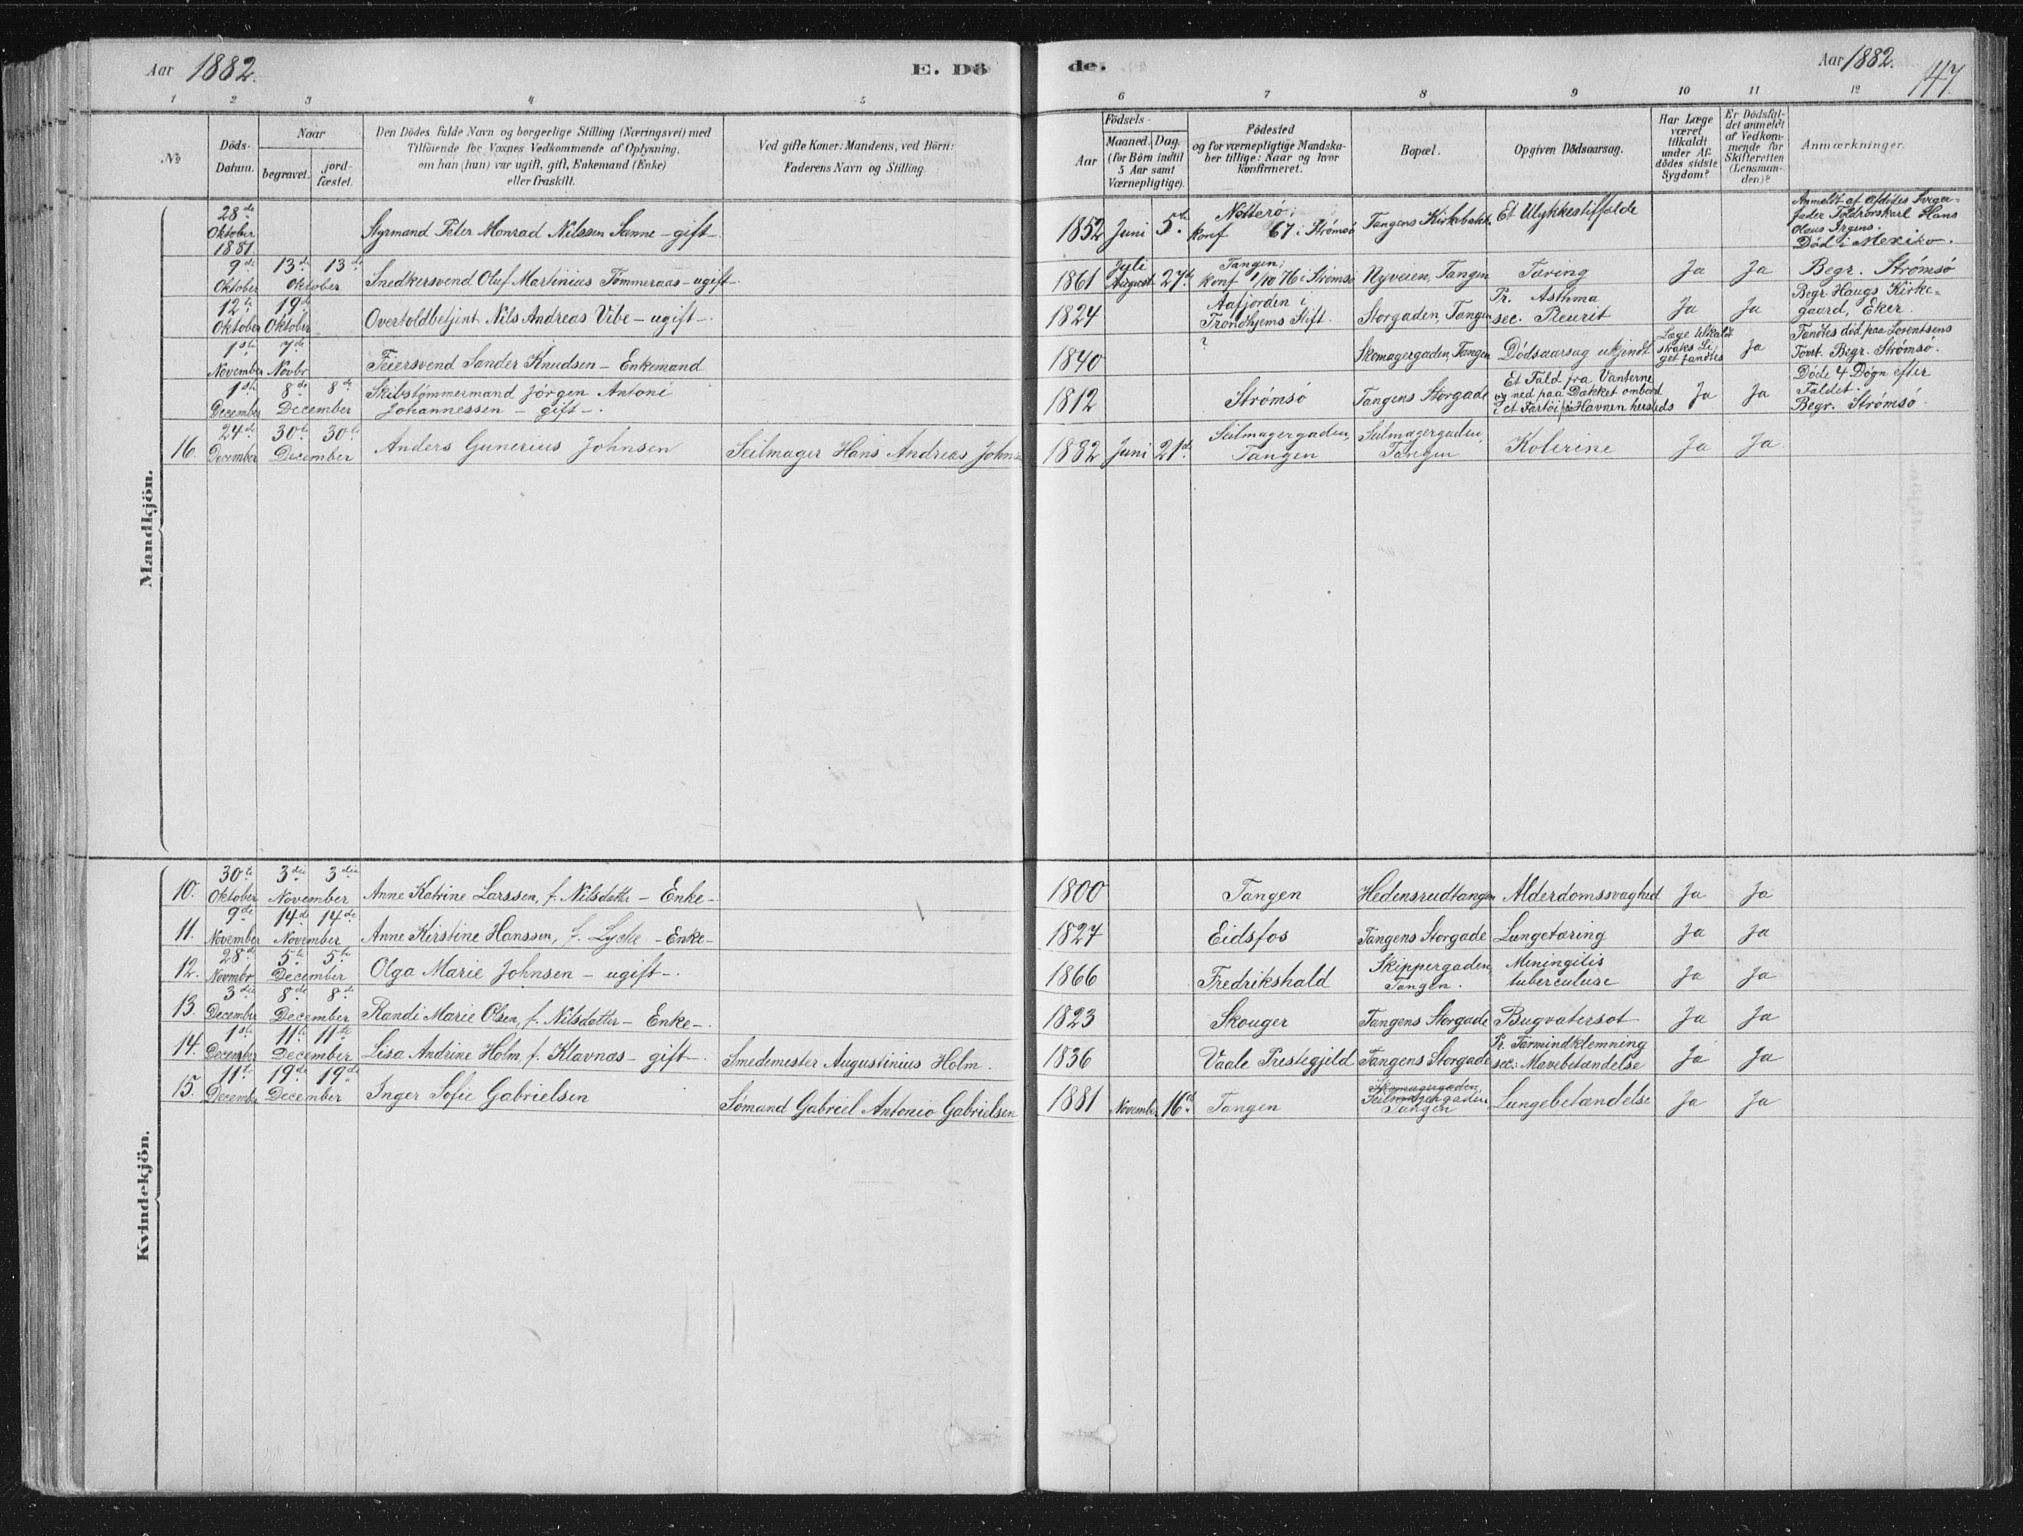 Aar 1882.
E. Dö
de.
Aar 1882.
147.
1 2 3 4 5 6 7 8 9 10 11 12
№
Döds-
Datum.
Naar
begravet.
jord-
fæstet.
Den Dödes fulde Navn og borgerlige Stilling (Næringsvei) med
Tilföiende for Voxnes Vedkommende af Oplysning,
om han (hun) var ugift, gift, Enkemand (Enke)
eller fraskilt.
Ved gifte Koner: Mandens, ved Börn:
Faderens Navn og Stilling.
Födsels-
Aar
Maaned. Dag.
(for Börn indtil
5 Aar samt
Værnepligtige).
Födested
og for værnepligtige Mandska-
ber tillige: Naar og hvor
konfirmeret.
Bopæl.
Opgiven Dödsaarsag.
Har Læge
været
tilkaldt
under Af-
dödes sidste
Sygdom?
Er Dödsfal-
det anmeldt
af Vedkom-
mende for
Skifteretten
(Lensman-
den)?
Anmærkninger.
Mandkjön.
28de
Oktober
1881
Styrmand Peter Monrad Nilssen Sanne - gift -
1852 Juni 5te
Nøtterø;
konf 67 i Strømsø
Tangens Kirkebakke
Et Ulykkestilfælde
Anmeldt af afdødes Sviger-
fader Toldrorskarl Hans
Olaus Irgens.
Død i Mexiko.
9de 13de 13de
Oktober Oktober
Snedkersvend Oluf Martinius Tömmeraas - ugift -
1861 Juli
August 27de
Tangen;
konf 1/10 76 i Strømsø
Nyveien, Tangen
Tæring
Ja Ja
Begr. Strømsø
12te 19de
Oktober Oktober
Overtoldbetjent Nils Andreas Vibe - ugift -
1824
Aafjorden i
Trondhjems Stift.
Storgaden, Tangen
Pr. Asthma
sec. Pleurit
Ja Ja
Begr. Haugs Kirke-
gaard, Eker.
1ste 7de
November Novbr
Feiersvend Sander Knudsen - Enkemand
1840
?
Skomagergaden, Tangen
Dødsaarsag ukjendt
Læge tilkaldt
straks Li-
get fandtes
Ja
Fandtes død paa Lorentsens
Tomt. Begr. Strømsø.
1ste 8de 8de
December December
Skibstømmermand Jörgen Antoni
Johannessen - gift -
1812
Strømsø
Tangens Storgade
Et Fald fra Vanterne
og ned paa Dækket ombord
i et Fartøi paa Havnen hersteds
Ja Ja
Døde 4 Døgn efter
Faldet.
Begr. Strømsø.
24de 30te 30te
16. December December
Anders Gunerius Johnsen
Seilmager Hans Andreas Johnsen
1882 Juni 21de
Seilmagergaden,
Tangen
Seilmagergaden,
Tangen
Kolerine
Ja Ja
Kvindekjön.
30te 3die 3die
10. Oktober November
Anne Katrine Larssen, f. Nilsdatter - Enke -
1800
Tangen
Hedensrudtangen
Alderdomssvaghed
Ja Ja
9de 14de 14de
11. November November
Anne Kirstine Hanssen, f. Lycke - Enke -
1827
Eidsfos
Tangens Storgade
Lungetæring
Ja Ja
28de 5te 5te
12. Novmbr December
Olga Marie Johnsen - ugift -
1866
Fredrikshald
Skippergaden,
Tangen.
Meningitis
tuberculuse
Ja Ja
3die 8de 8de
13. December December
Randi Marie Olsen, f. Nilsdatter - Enke -
1823
Skouger
Tangens Storgade
Bugvatersot
Ja Ja
1ste 11te 11te
14. December December
Lisa Andrine Holm f. Klavnæs - gift -
Smedemester Augustinius Holm.
1836
Vaale Prestegjeld
Tangens Storgade
Pr. Tarmindklemning
sec. Mavebetændelse
Ja Ja
11te 19de 19de
15. December December
Inger Sofie Gabrielsen
Sømand Gabriel Antonio Gabrielsen
1881 November 16de
Tangen
Skomagergaden,
Seilmagergaden,
Tangen
Lungebetændelse
Ja Ja